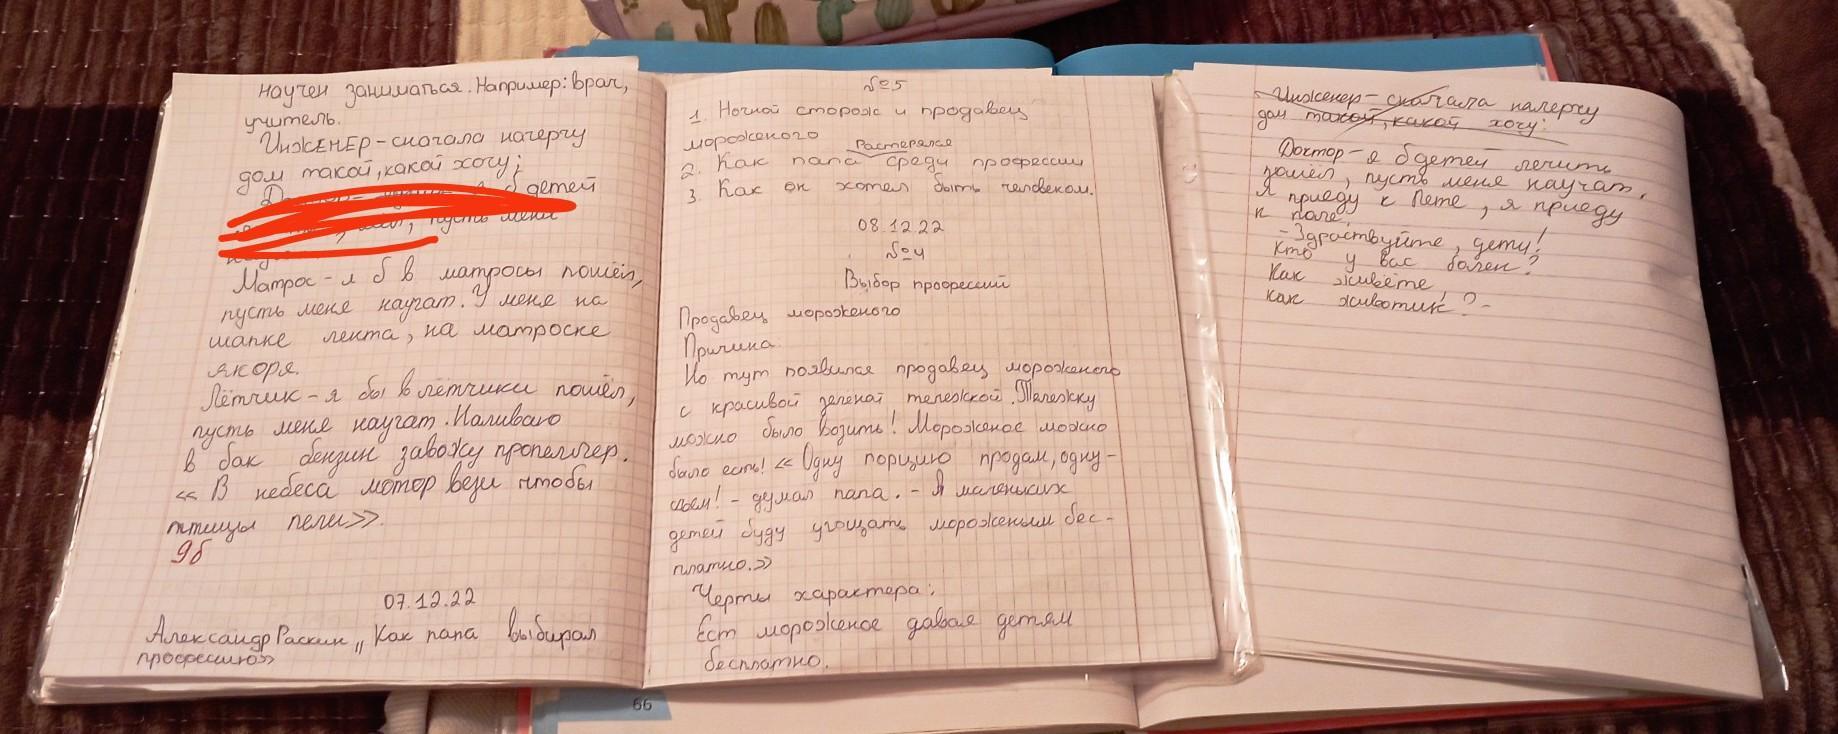 научен заниматься. Например: врач,
учитель.
Инженер - сначала начерчу
дом такой, какой хочу;
б детей
пусть меня
Матрос - я б в матросы пошёл,
пусть меня научат. У меня на
шапке лента, на матроске
якоря.
Лётчик - я бы в лётчики пошёл,
пусть меня научат. Наливаю
в бак бензин завожу пропеллер.
« В небеса мотор вези чтобы
птицы пели».
9б
07.12.22
Александр Раскин „ Как папа выбирал
профессию»
№5
1. Ночной сторож и продавец
мороженого
Растерялся
2. Как папа среди профессии
3. Как он хотел быть человеком.
08.12.22
№4
Выбор профессий
Продавец мороженого
Причина
Но тут появился продавец мороженого
с красивой зелёной тележкой. Тележку
можно было возить! Мороженое можно
было есть! « Одну порцию продам, одну-
съем! - думал папа. - А маленьких
детей буду угощать мороженым бес-
платно.»
Черты характера:
Ест мороженое давая детям
бесплатно.
Инженер - сначала начерчу
дом такой, какой хочу:
Доктор - я б детей лечить
пошёл, пусть меня научат.
Я приеду к Пете, я приеду
к Поле.
- Здраствуйте, дети!
Кто у вас болен?
Как живёте,
как животик? -
66